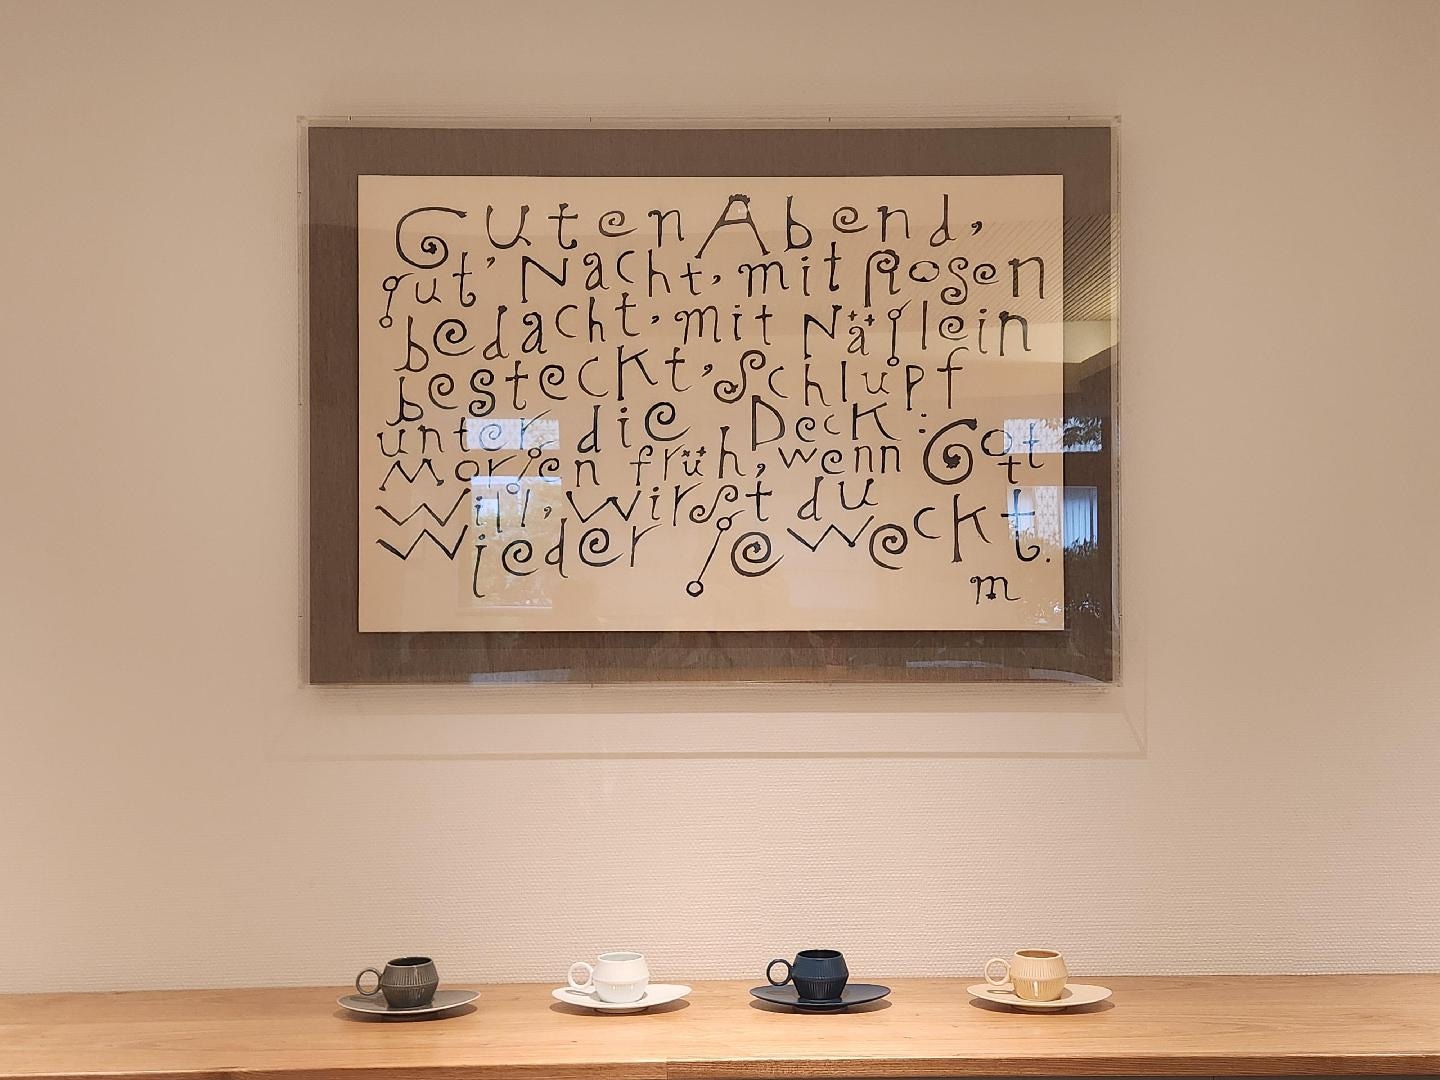 Guten Abend,
gut' Nacht, mit Rosen
bedacht, mit Näglein
besteckt, Schlupf
unter die Deck:
Morgen früh, wenn Gott
Will, Wirst du
Wieder geweckt.
m